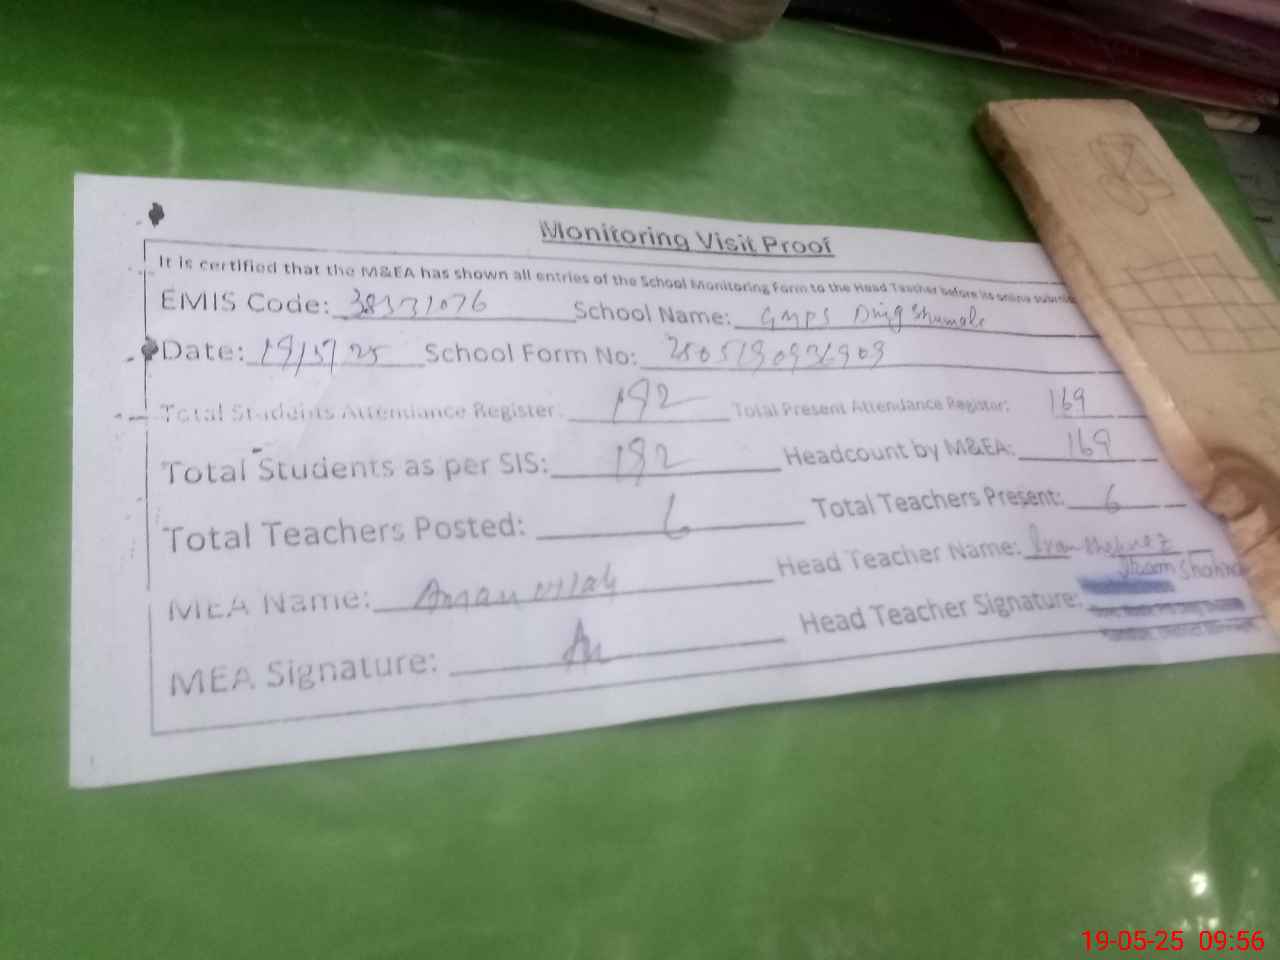 Monitoring Visit Proof
It is certified that the M&EA has shown all entries of the School Monitoring Form to the Head Teacher before its online
EMIS Code: 38331076 School Name: GMPS Dring Shumale
Date: 19/5/25 School Form No:
Total Students Attendance Register: 192 Total Present Attendance Register: 169
Total Students as per SIS: 192 Headcount by M&EA: 169
Total Teachers Posted: 6 Total Teachers Present: 6
MEA Name: Aman ullah Head Teacher Name:
MEA Signature: Head Teacher Signature:
19-05-25 09:56